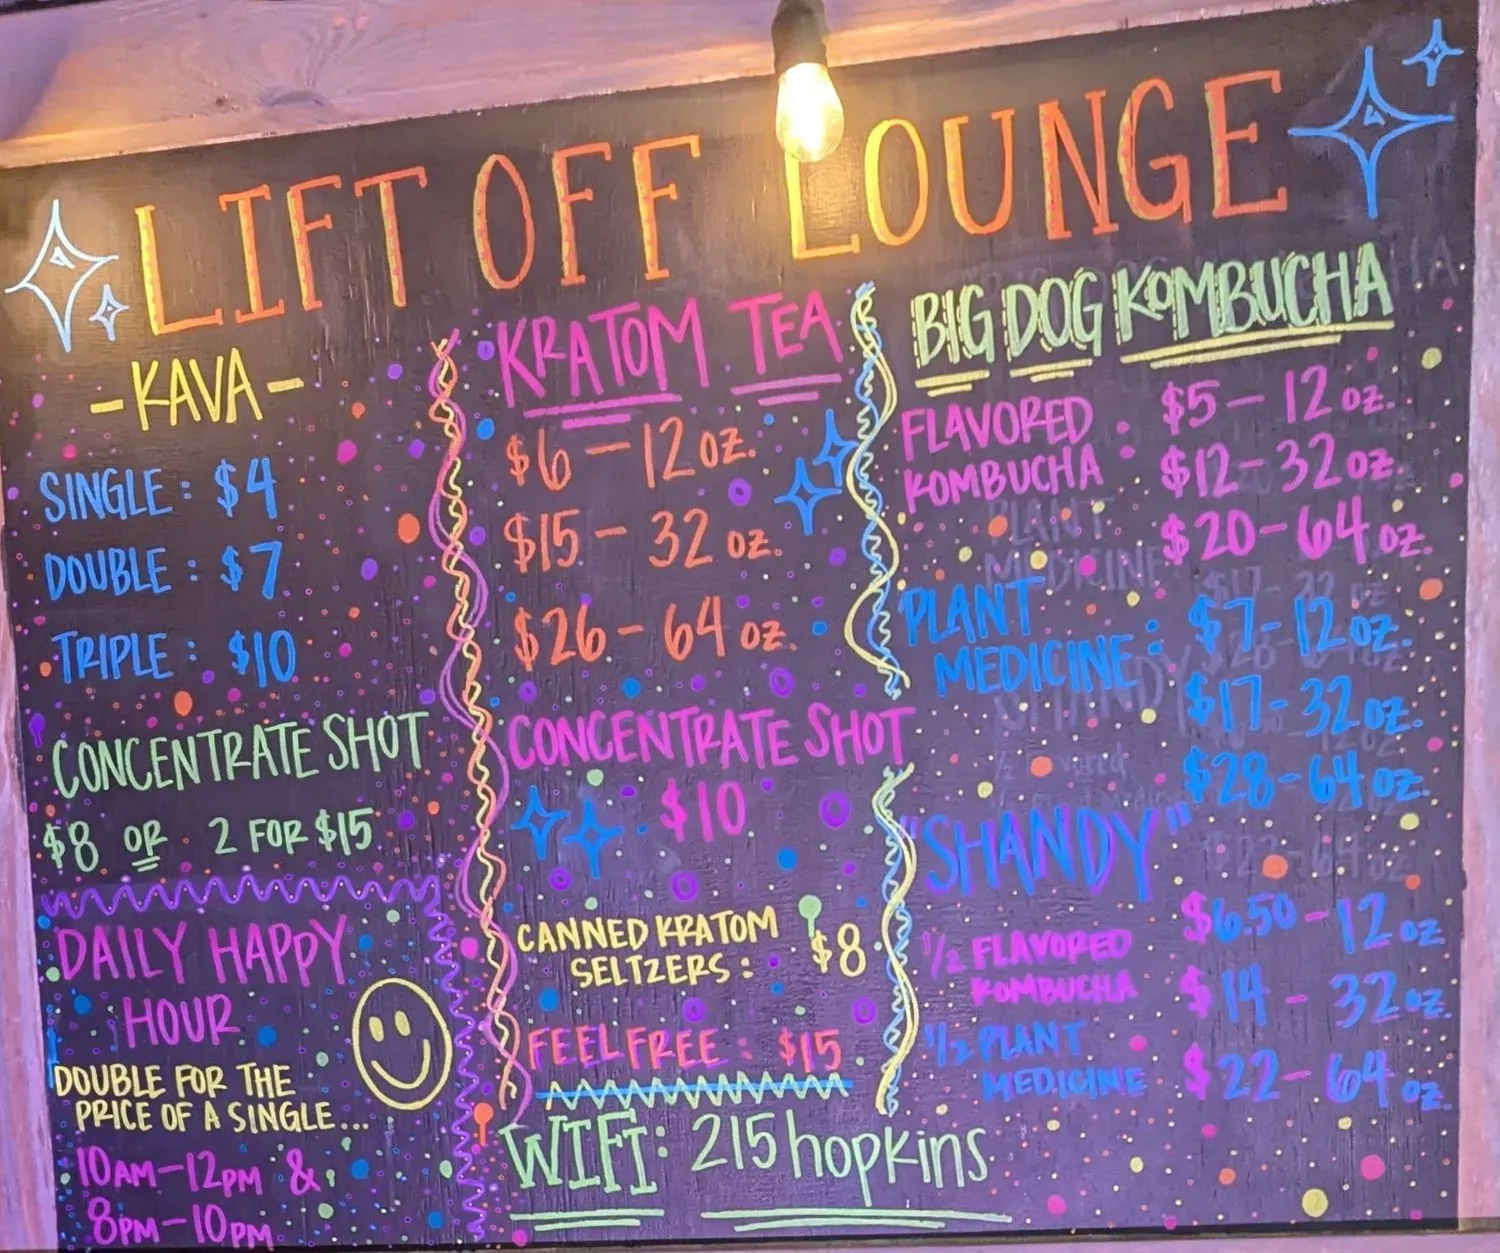 LIFT OFF LOUNGE
-KAVA-
SINGLE: $4
DOUBLE: $7
TRIPLE: $10
CONCENTRATE SHOT
$8 OR 2 FOR $15
DAILY HAPPY
HOUR
DOUBLE FOR THE
PRICE OF A SINGLE...
10AM-12PM &
8PM-10PM
KRATOM TEA
$6-12 OZ.
$15-32 OZ.
$26-64 OZ.
CONCENTRATE SHOT
$10
CANNED KRATOM
SELTZERS: $8
FEEL FREE: $15
WIFI: 215hopkins
BIG DOG KOMBUCHA
FLAVORED : $5-12 OZ.
KOMBUCHA : $12-32 OZ.
$20-64 OZ.
PLANT
MEDICINE: $7-12 OZ.
$17-32 OZ.
$28-64 OZ.
"SHANDY"
$6.50-12 OZ
1/2 FLAVORED
KOMBUCHA $14-32 OZ.
1/2 PLANT
MEDICINE $22-64 OZ.